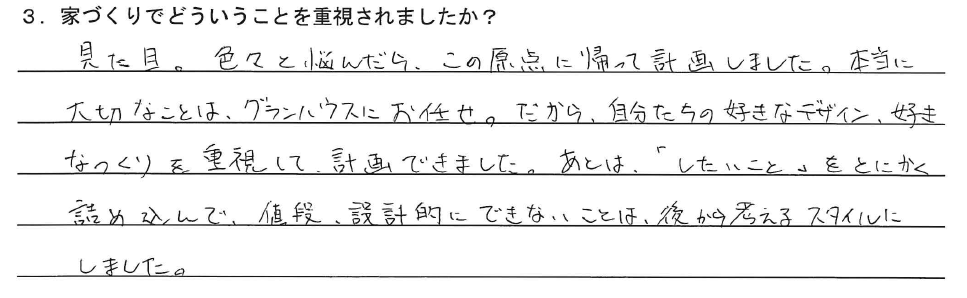 3. 家づくりでどういうことを重視されましたか?
見た目。色々と悩んだら、この原点に帰って計画しました。本当に
大切なことは、グランハウスにお任せ。だから、自分たちの好きなデザイン、好き
なつくりを重視して、計画できました。あとは、「したいこと」をとにかく
詰め込んで、値段、設計的にできないことは、後から考えるスタイルに
しました。